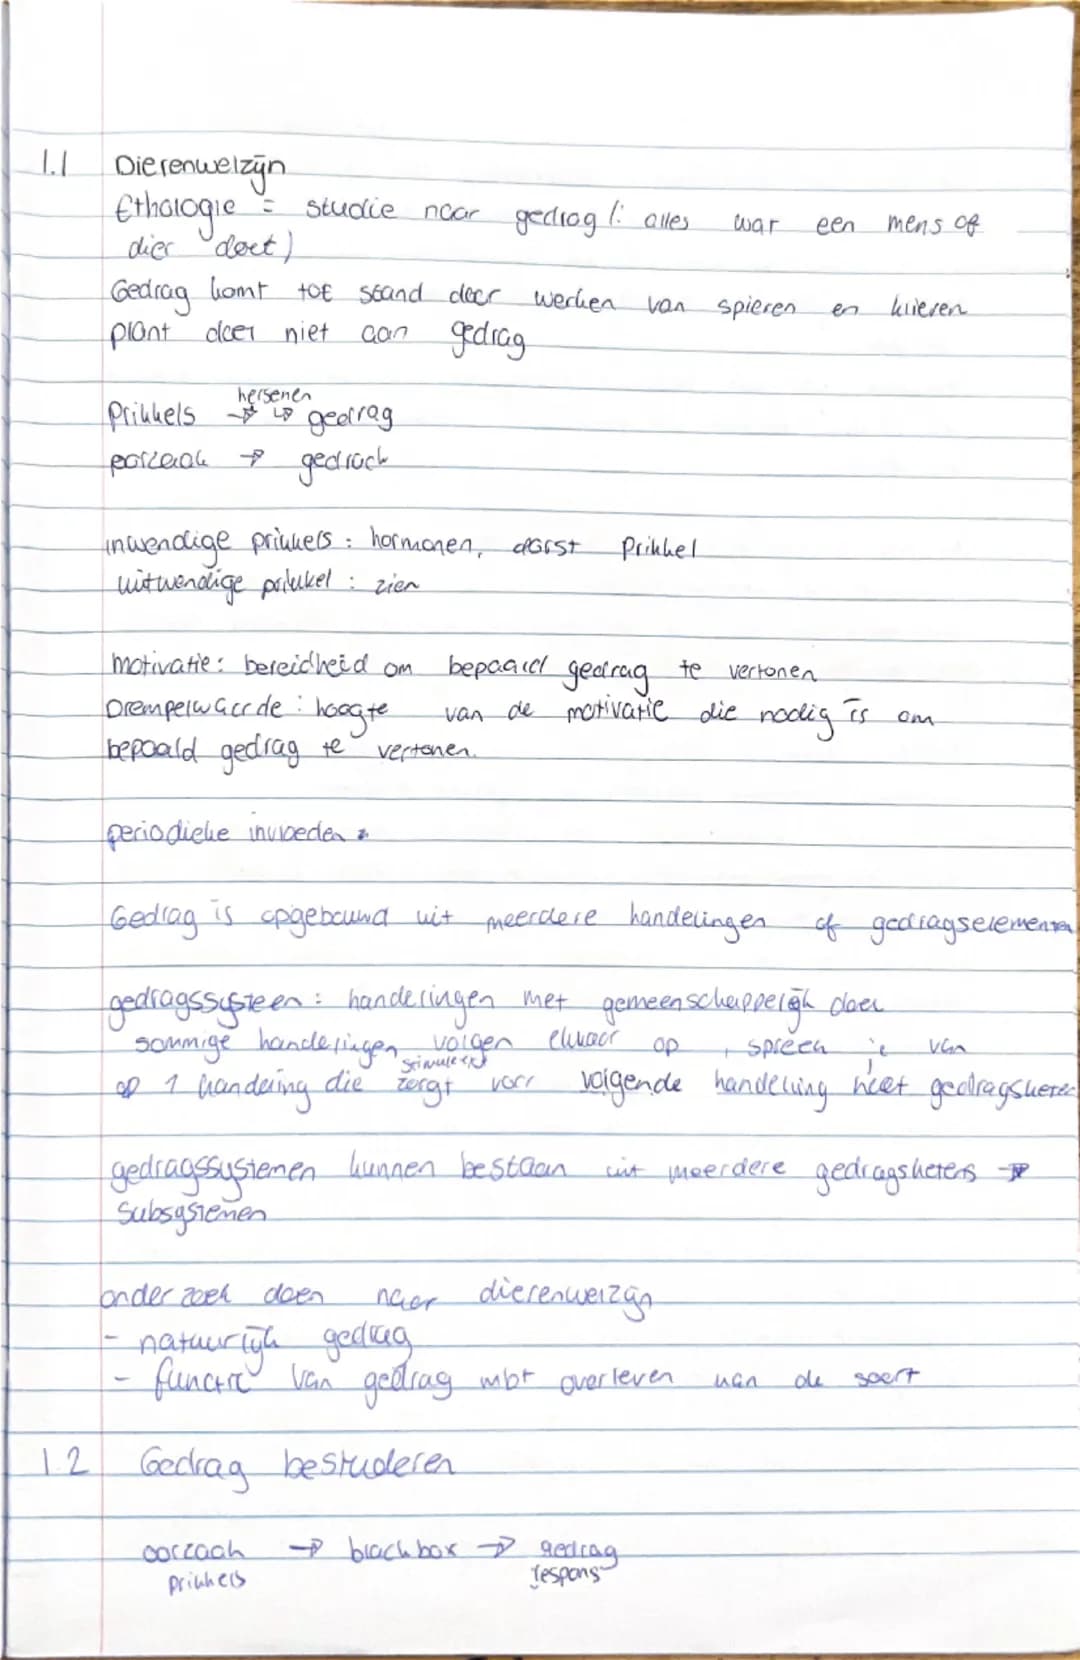 1.1 Dierenwelzijn
Ethologie = studie naar gedrag (: alles wat een mens of
dier doet)
Gedrag komt tot stand door werken van spieren en klieren
plant doet niet aan gedrag
hersenen
Prikkels → ↳ gedrag
oorzaak → gedrach
inwendige prikkels : hormonen, dorst Prikkel
uitwendige prikkel : zien
motivatie : bereidheid om bepaald gedrag te vertonen
Drempelwaarde : hoogte van de motivatie die nodig is om
bepaald gedrag te vertonen.
periodieke invloeden :
Gedrag is opgebouwd uit meerdere handelingen of gedragselementen
gedragssysteen : handelingen met gemeenschappelijk doel
sommige handelingen volgen elkaar op , spreek je van
stimuleert
op 1 handeling die zorgt voor volgende handeling heet gedragsketen
gedragssystemen kunnen bestaan uit meerdere gedragsketens →
Subsystemen
onderzoek doen naar dierenwelzijn
- natuurlijk gedrag
- functie van gedrag mbt overleven van de soort
1.2 Gedrag bestuderen
oorzaak → black box → gedrag
prikkels respons